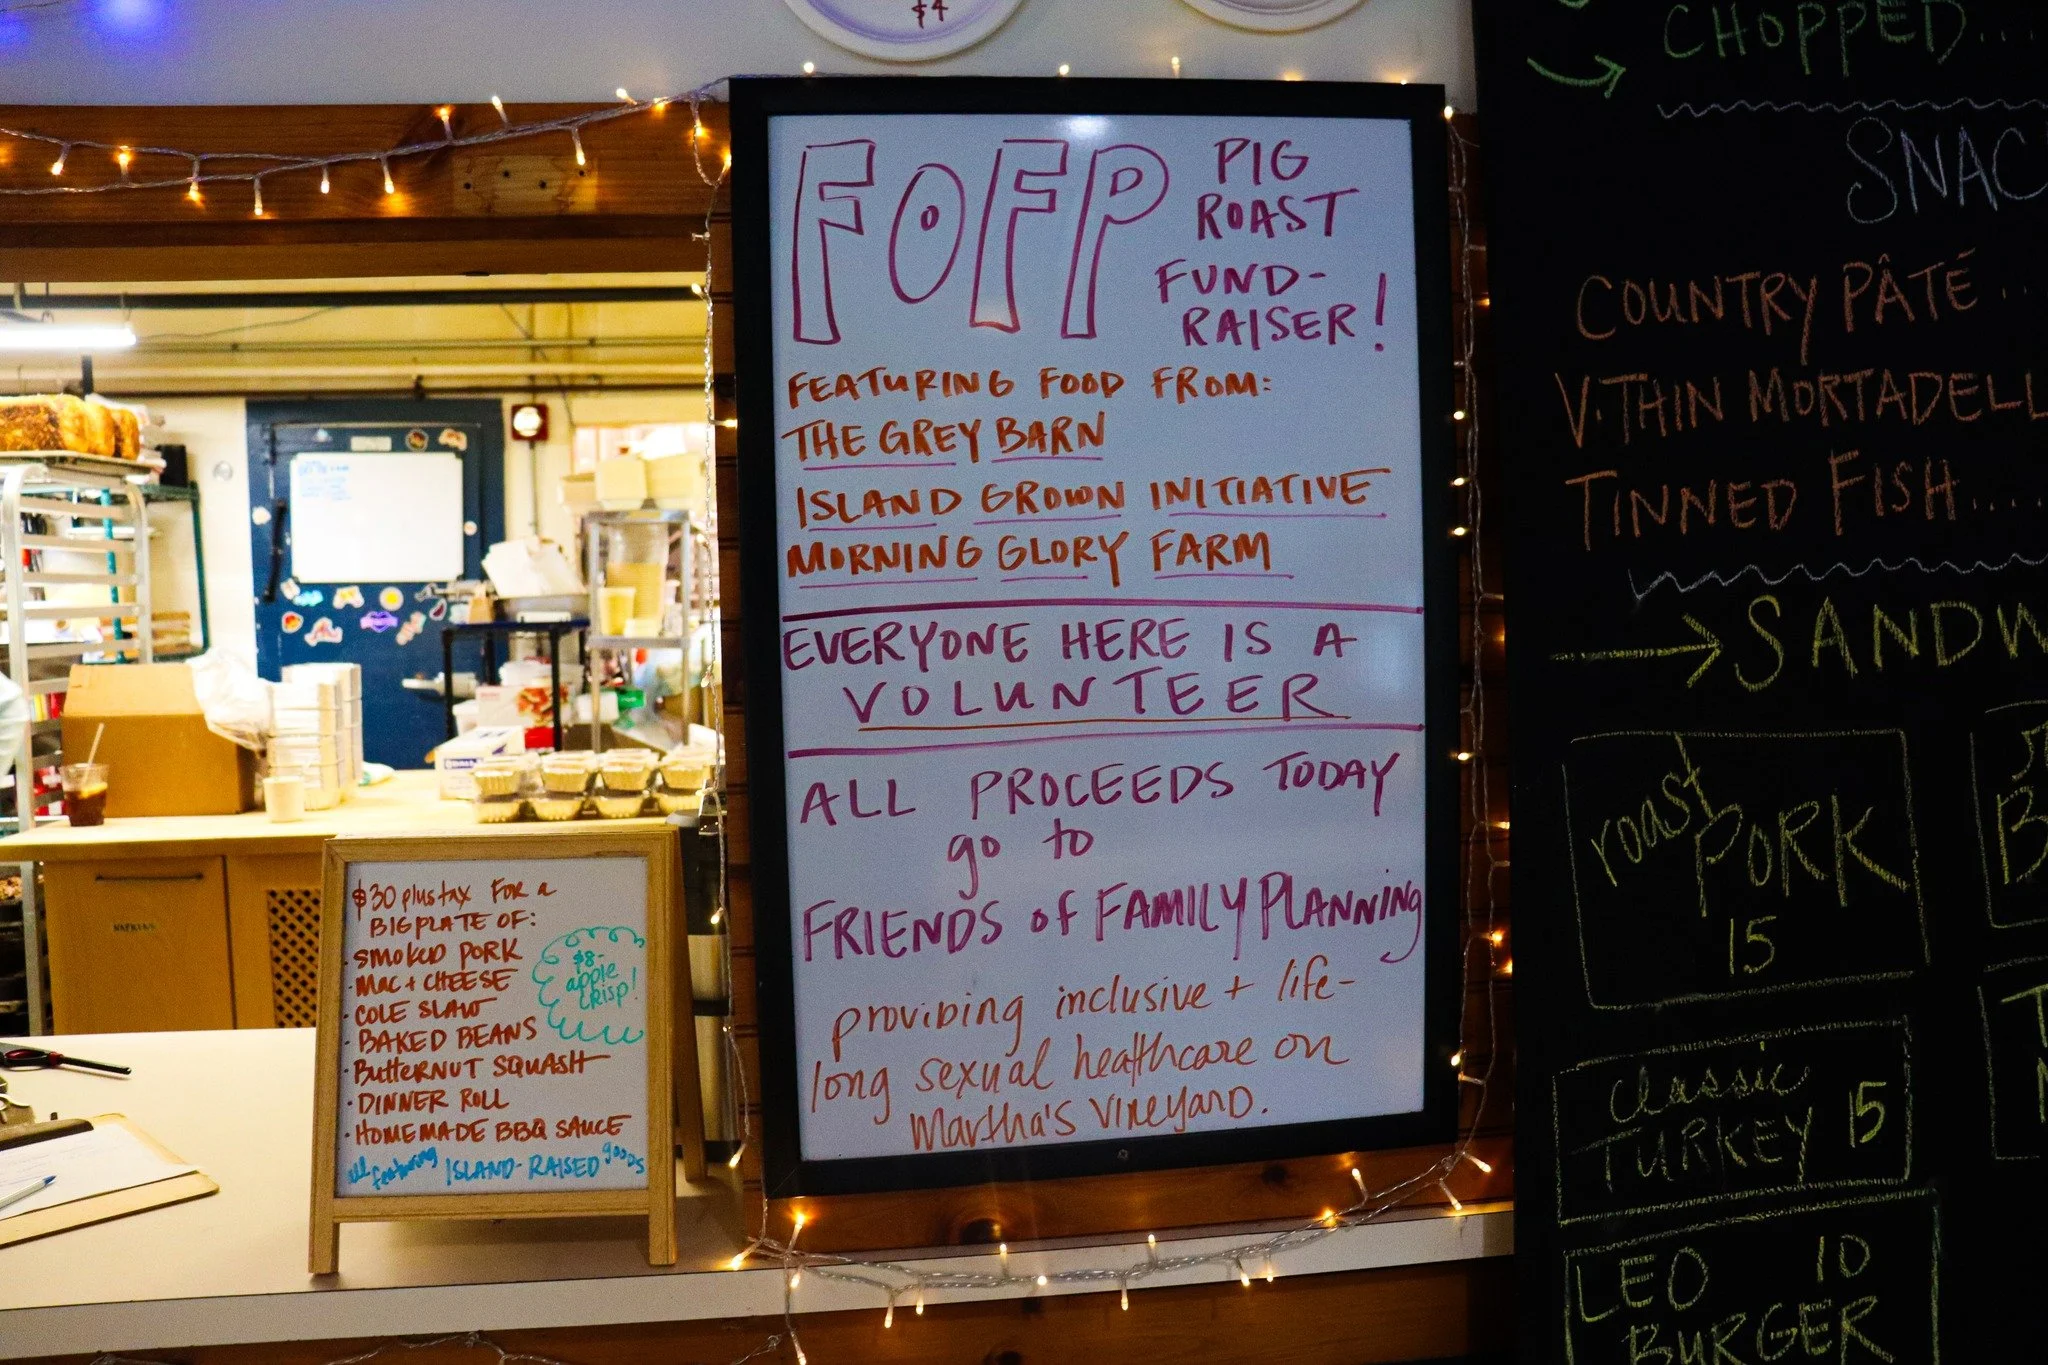 $4
FOFP
PIG
ROAST
FUND-
RAISER!
FEATURING FOOD FROM:
THE GREY BARN
ISLAND GROWN INITIATIVE
MORNING GLORY FARM
EVERYONE HERE IS A
VOLUNTEER
ALL PROCEEDS TODAY
go to
FRIENDS of FAMILY PLANNING
providing inclusive + life-
long sexual healthcare on
Martha's Vineyard.
$30 plus tax FOR a
BIG PLATE OF:
· SMOKED PORK
· MAC + CHEESE
· COLE SLAW
· BAKED BEANS
· BUTTERNUT SQUASH
· DINNER ROLL
· HOMEMADE BBQ SAUCE
$8-
apple
crisp!
all featuring ISLAND-RAISED goods
NAPKINS
CHOPPED...
SNAC
COUNTRY PÂTÉ..
V. THIN MORTADELL
TINNED FISH....
SANDW
roast
PORK
15
classic
TURKEY 15
LEO 10
BURGER